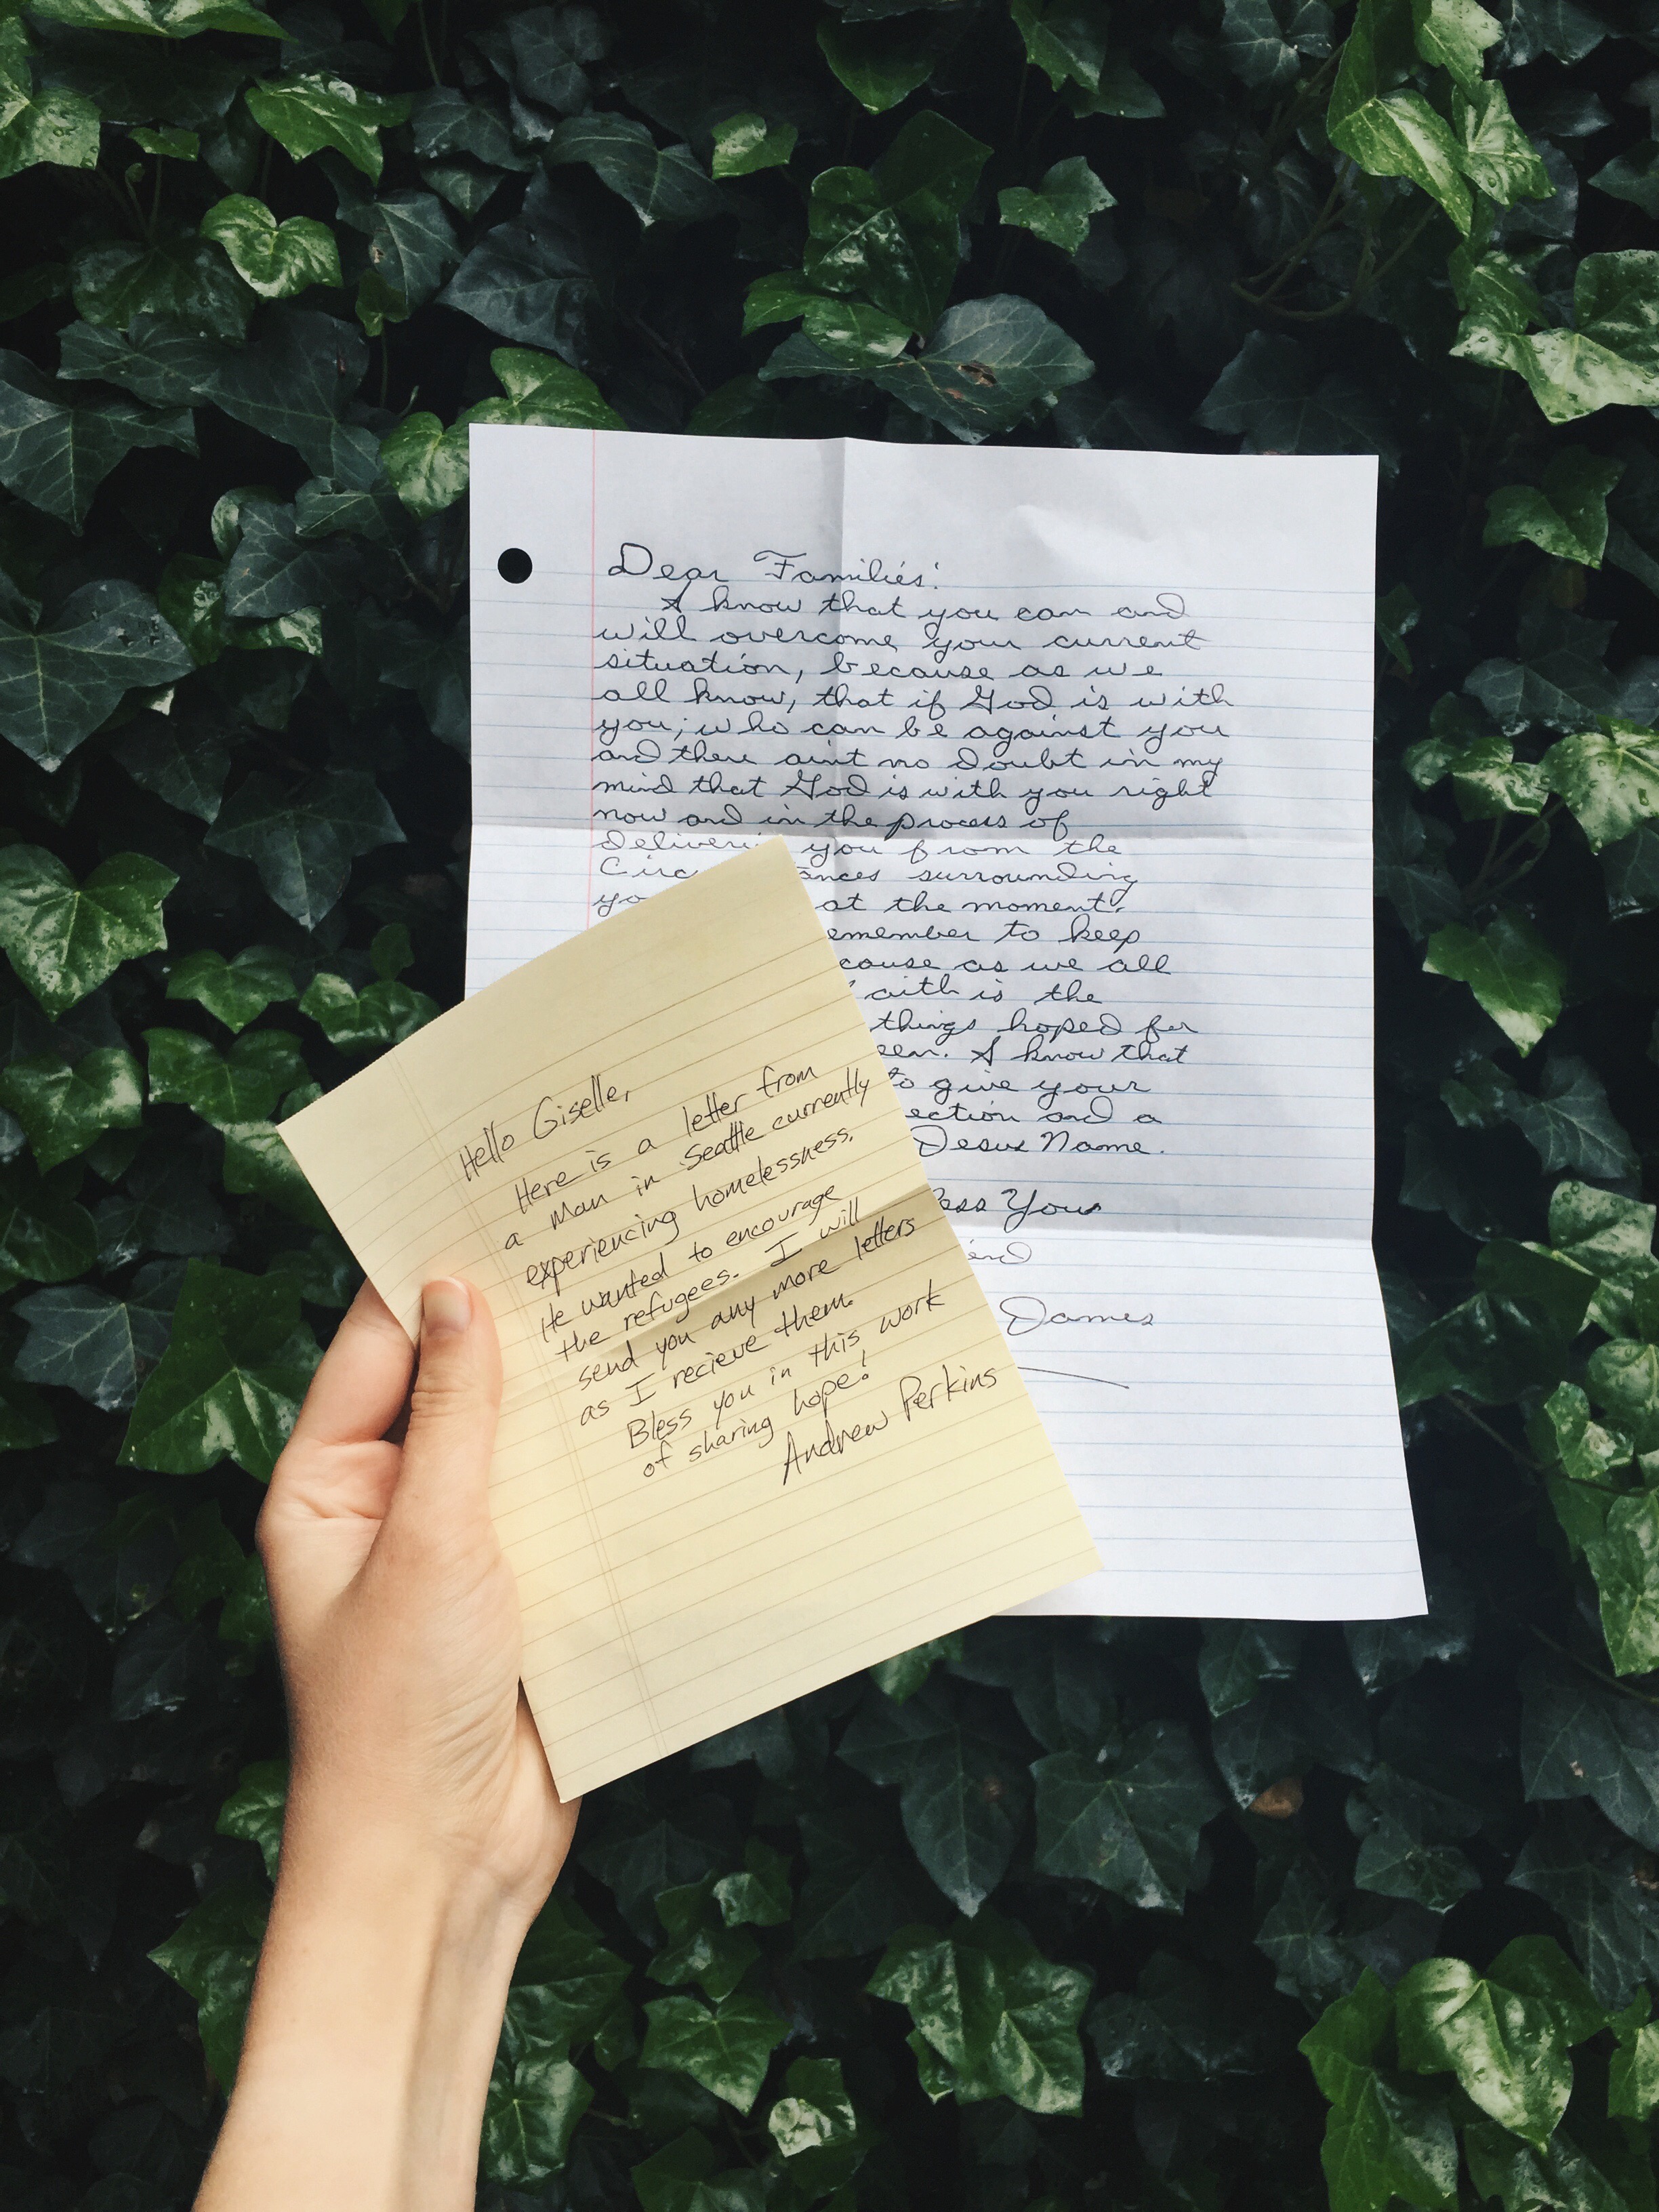 Dear Families:
I know that you can and
will overcome your current
situation, because as we
all know, that if God is with
you; who can be against you
and there aint no doubt in my
mind that God is with you right
now and in the process of
you from the
surrounding
at the moment.
to keep
as we all
is the
things hoped for
I know that
to give your
and a
Jesus Name.
You
James
Hello Giselle,
Here is a letter from
a man in Seattle currently
experiencing homelessness.
He wanted to encourage
the refugees. I will
send you any more letters
as I recieve them.
Bless you in this work
of sharing hope!
Andrew Perkins